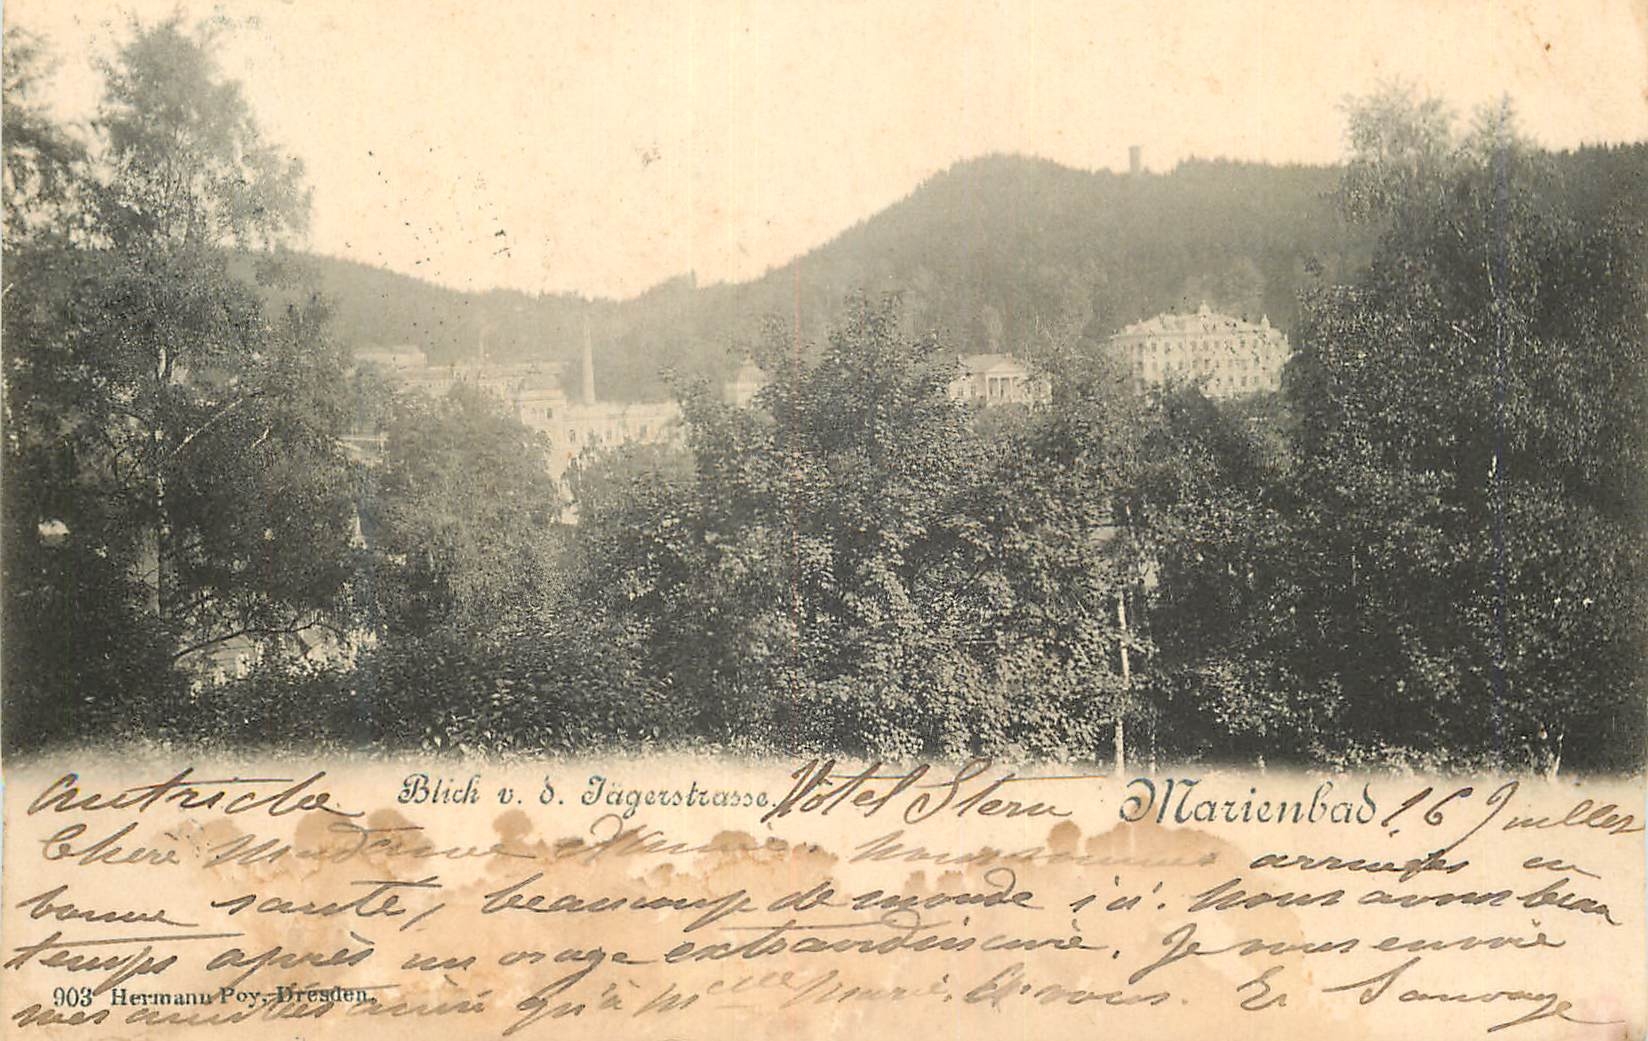 Autriche Blick v. d. Jägerstrasse. Hôtel Stern Marienbad, 16 Juillet
Chère Madame nous sommes arrivées en
bonne santé, beaucoup de monde ici. nous avons beau
temps après un orage extraordinaire. Je vous envoie
903 Hermann Poy, Dresden.
mes amitiés ainsi qu'à Mlle vous. E. Sauvage